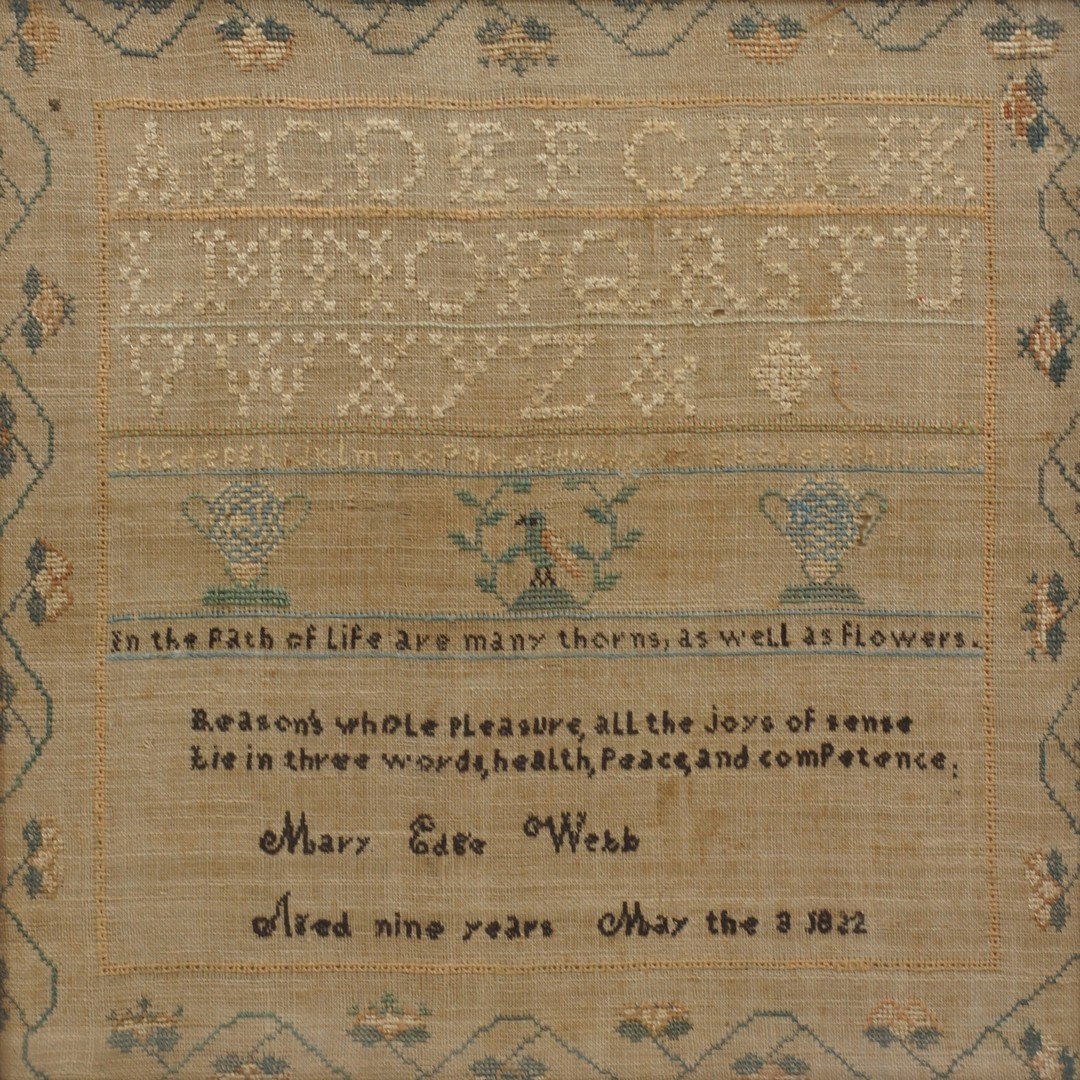 ABCDEFGHIJK
LMNOPQRSTU
VWXYZ&
In the Path of Life are many thorns, as well as flowers.
Reason's whole pleasure, all the joys of sense
Lie in three words, health, Peace, and comPetence;
Mary Edge Webb
Aged nine years May the 3 1822